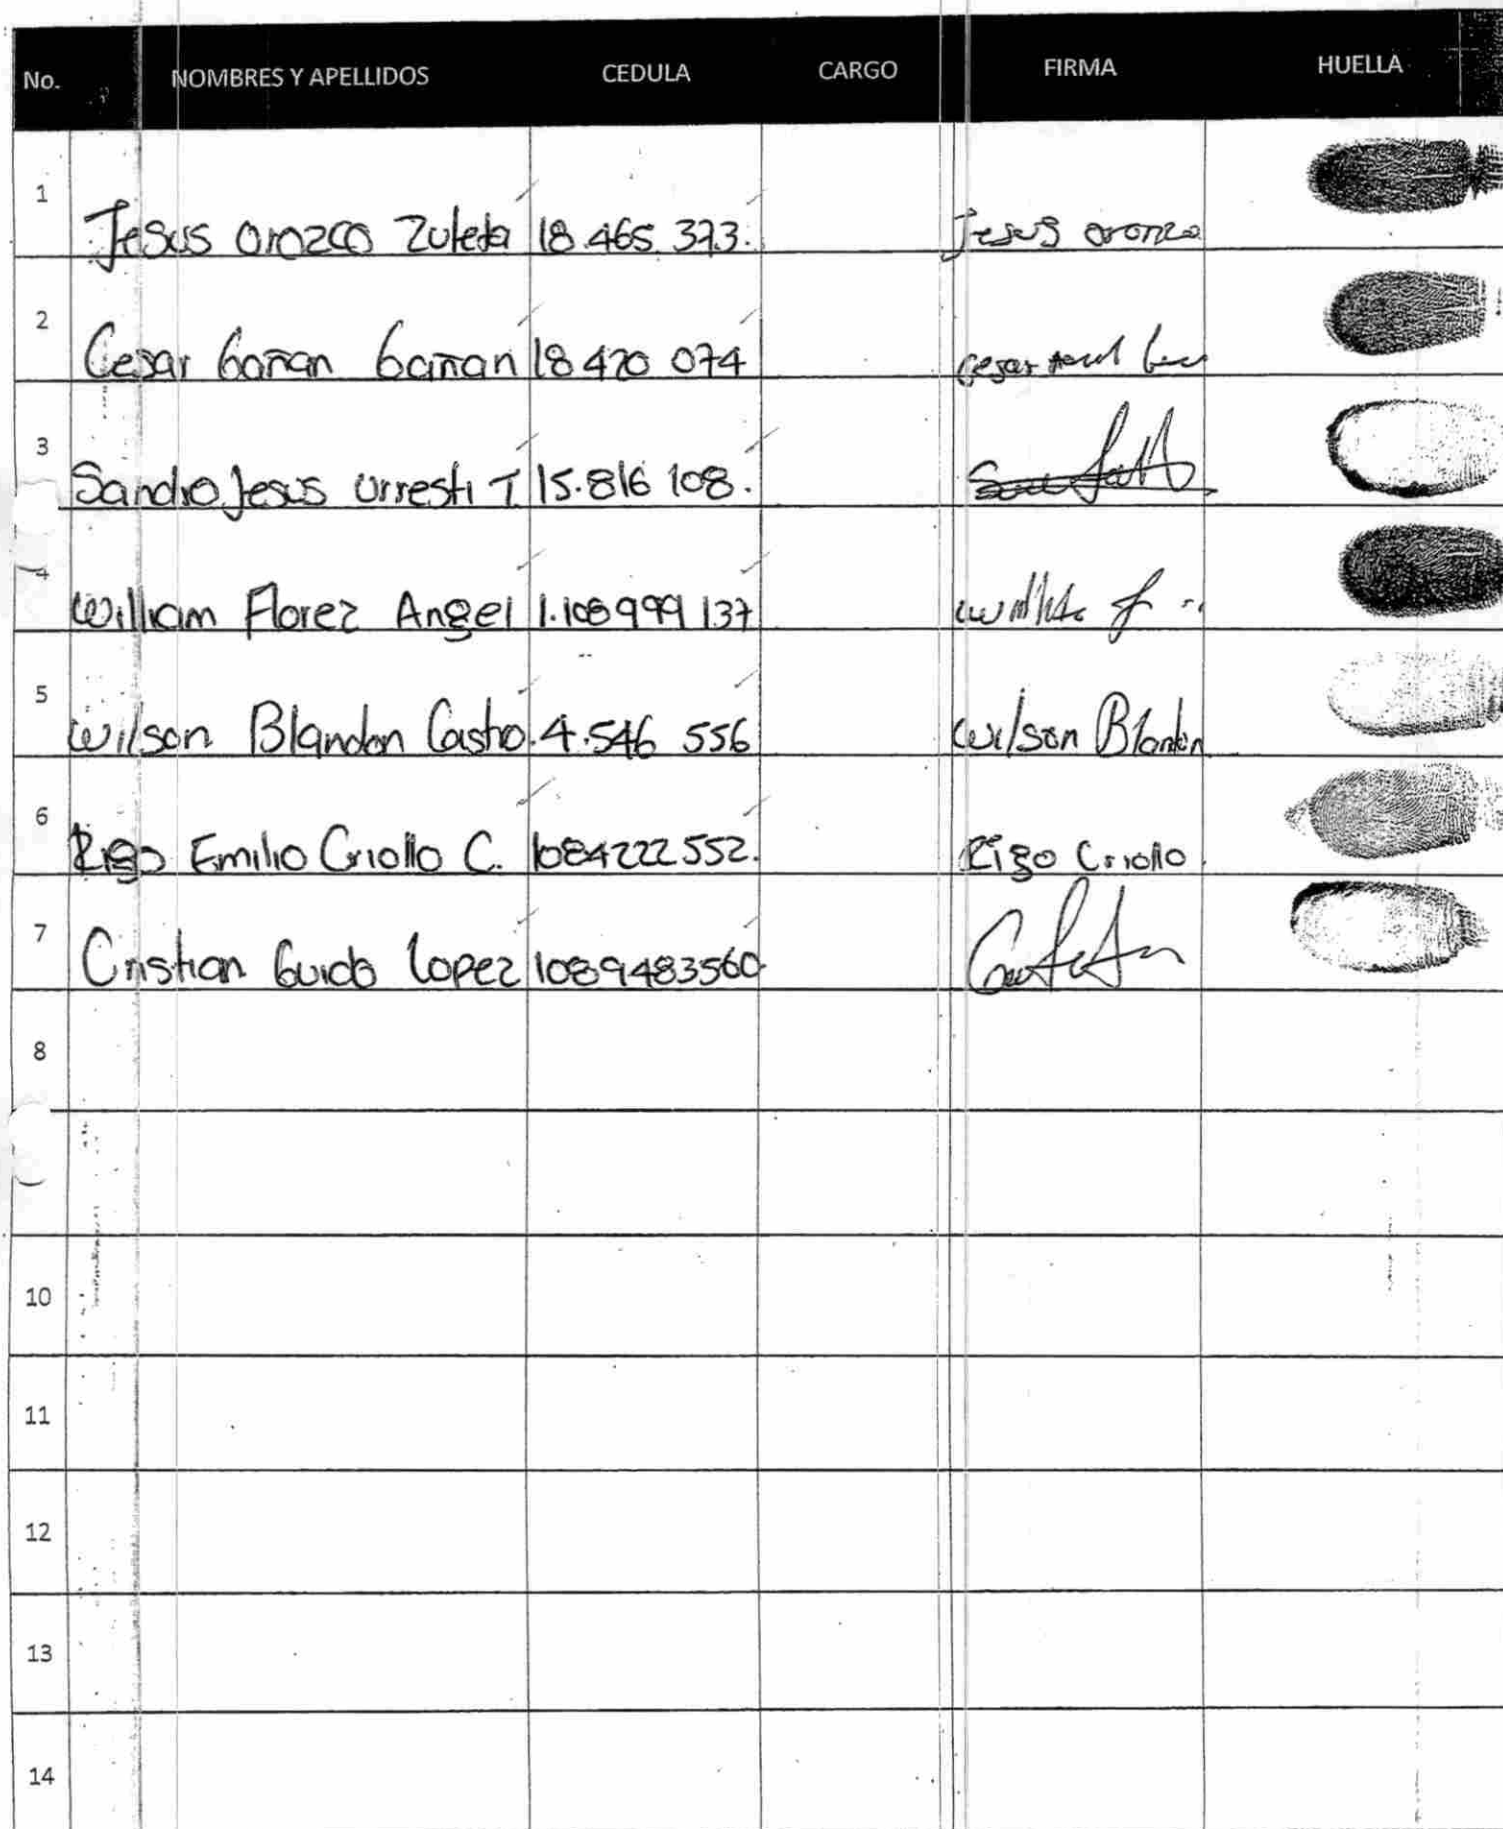 No. NOMBRES Y APELLIDOS CEDULA CARGO FIRMA HUELLA
1 Jesus Orozco Zuleta 18.465.373. Jesus oronzo
2 Cesar Gañan Gañan 18 470 074 Cesar
3 Sandro Jesus Urresti T. 15.816 108.
4 William Florez Angel 1.108 999 137
5 Wilson Blandon Castro. 4.546 556 Wilson Blandon
6 Rigo Emilio Criollo C. 1084222552. Rigo Criollo.
7 Cristian Guido Lopez 1089483560.
8
10
11
12
13
14